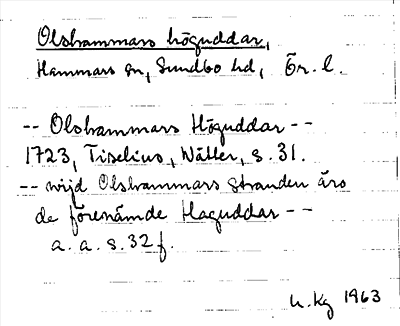 Olshammars höguddar,
Hammars sn, Sundbo hd, Ör. l.
-- Olshammars Höguddar --
1723, Tiselius, Wätter, s. 31.
-- wijd Olshammars stranden äro
de förenämde Haguddar --
a. a. s. 32 f.
1963